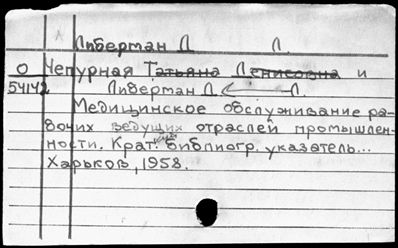 Либерман Л. Л.
О Чепурная Татьяна Денисовна и
54142 Либерман Л. Л.
Медицинское обслуживание ра-
бочих ведущих отраслей промышлен-
ности. Крат. библиогр. указатель...
Харьков, 1958.